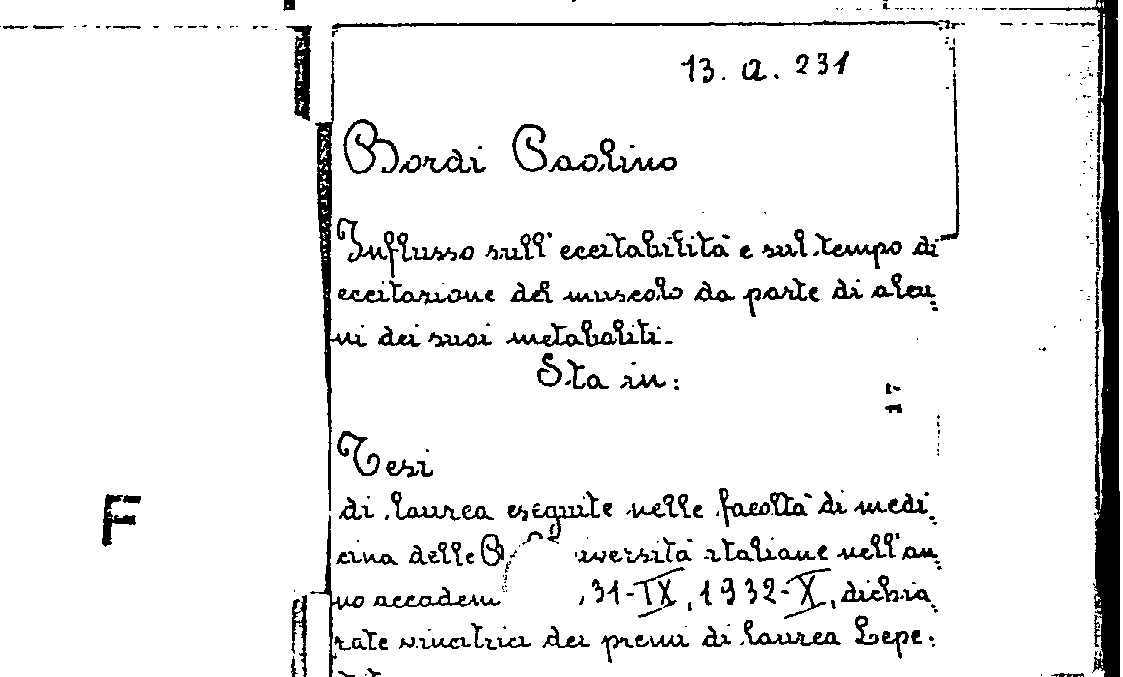 13. a. 231
Bordi Paolino
Influsso sull' eccitabilità e sul tempo di
eccitazione del muscolo da parte di alcu:
ni dei suoi metaboliti.
Sta in:
Tesi
di laurea eseguite nelle facoltà di medi:
F
cina delle iversità italiane nell'an:
no accadem ,31-IX, 1932-X, dichia:
rate vincitrici dei premi di laurea Lepe: